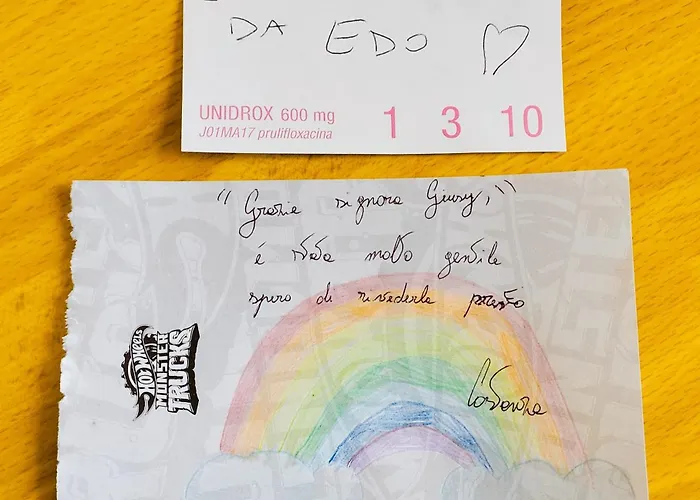 DA EDO
UNIDROX 600 mg 1 3 10
J01MA17 prulifloxacina
"Grazie signora Giusy,"
è stata molto gentile
spero di rivederla presto
HOT WHEELS
MONSTER
TRUCKS